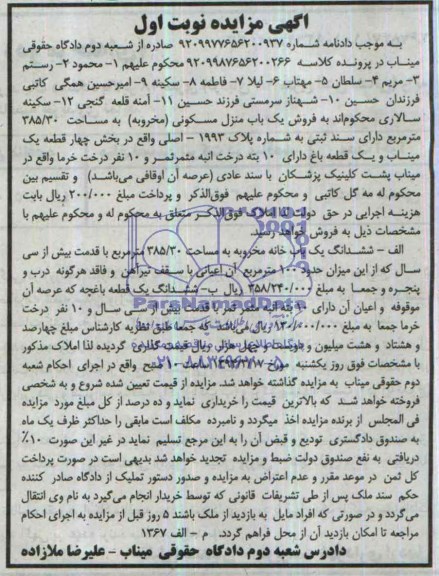 آگهی مزایده نوبت اول
به موجب دادنامه شماره ۹۲۰۹۹۷۷۶۵۶۲۰۰۹۳۷ صادره از شعبه دوم دادگاه حقوقی
میناب در پرونده کلاسه ۹۲۰۹۹۸۷۶۵۶۲۰۰۲۶۶ محکوم علیهم ۱- محمود ۲- رستم
۳- مریم ۴- سلطان ۵- مهتاب ۶- لیلا ۷- فاطمه ۸- سکینه ۹- امیرحسین همگی کاتبی
فرزندان حسین ۱۰- شهناز سرمستی فرزند حسین ۱۱- آمنه قلعه گنجی ۱۲- سکینه
سالاری محکوم‌اند به فروش یک باب منزل مسکونی (مخروبه) به مساحت ۳۸۵/۳۰
مترمربع دارای سند ثبتی به شماره پلاک ۱۹۹۳ - اصلی واقع در بخش چهار قطعه یک
میناب و یک قطعه باغ دارای ۱۰ بته درخت انبه مثمرثمر و ۱۰ نفر درخت خرما واقع در
میناب پشت کلینیک پزشکان با سند عادی (عرصه آن اوقافی می‌باشد) و تقسیم بین
محکوم له مه گل کاتبی و محکوم علیهم فوق‌الذکر و پرداخت مبلغ ۲۰۰/۰۰۰ ریال بابت
هزینه اجرایی در حق دولت لذا املاک فوق‌الذکر متعلق به محکوم له و محکوم علیهم با
مشخصات ذیل به فروش خواهد رسید.
الف - ششدانگ یک باب خانه مخروبه به مساحت ۳۸۵/۳۰ مترمربع با قدمت بیش از سی
سال که از این میزان حدود ۱۰۰ مترمربع آن اعیانی با سقف تیرآهن و فاقد هرگونه درب و
پنجره و جمعا به مبلغ ۳۵۸/۲۴۰/۰۰۰ ریال ب- ششدانگ یک قطعه باغچه که عرصه آن
موقوفه و اعیان آن دارای ۱۰ بته انبه مثمر ثمر با قدمت بیش از سی سال و ۱۰ نفر درخت
خرما جمعا به مبلغ ۱۳۰/۰۰۰/۰۰۰ ریال می‌باشد که جمعا طبق نظریه کارشناس مبلغ چهارصد
و هشتاد و هشت میلیون و دویست و چهل هزار ریال قیمت گذاری گردیده لذا املاک مذکور
با مشخصات فوق روز یکشنبه مورخ صبح واقع در اجرای احکام شعبه
دوم حقوقی میناب به مزایده گذاشته خواهد شد. مزایده از قیمت تعیین شده شروع و به شخصی
فروخته خواهد شد که بالاترین قیمت را خریداری نماید و ده درصد از کل مبلغ مورد مزایده
فی المجلس از برنده مزایده اخذ میگردد و نامبرده مکلف است مابقی را حداکثر ظرف یک ماه
به صندوق دادگستری تودیع و قبض آن را به این مرجع تسلیم نماید در غیر این صورت ۱۰٪
دریافتی به نفع صندوق دولت ضبط و مزایده تجدید خواهد شد بدیهی است در صورت پرداخت
کل ثمن در موعد مقرر و عدم اعتراض به مزایده و صدور دستور تملیک از دادگاه صادر کننده
حکم سند ملک پس از طی تشریفات قانونی که توسط خریدار انجام می‌گیرد به نام وی انتقال
می‌گردد و در صورتی که افراد مایل به بازدید از ملک باشند ۵ روز قبل از مزایده به اجرای احکام
مراجعه تا امکان بازدید آن از محل فراهم گردد. م - الف ۱۳۶۷
دادرس شعبه دوم دادگاه حقوقی میناب - علیرضا ملازاده
ParsNamadData